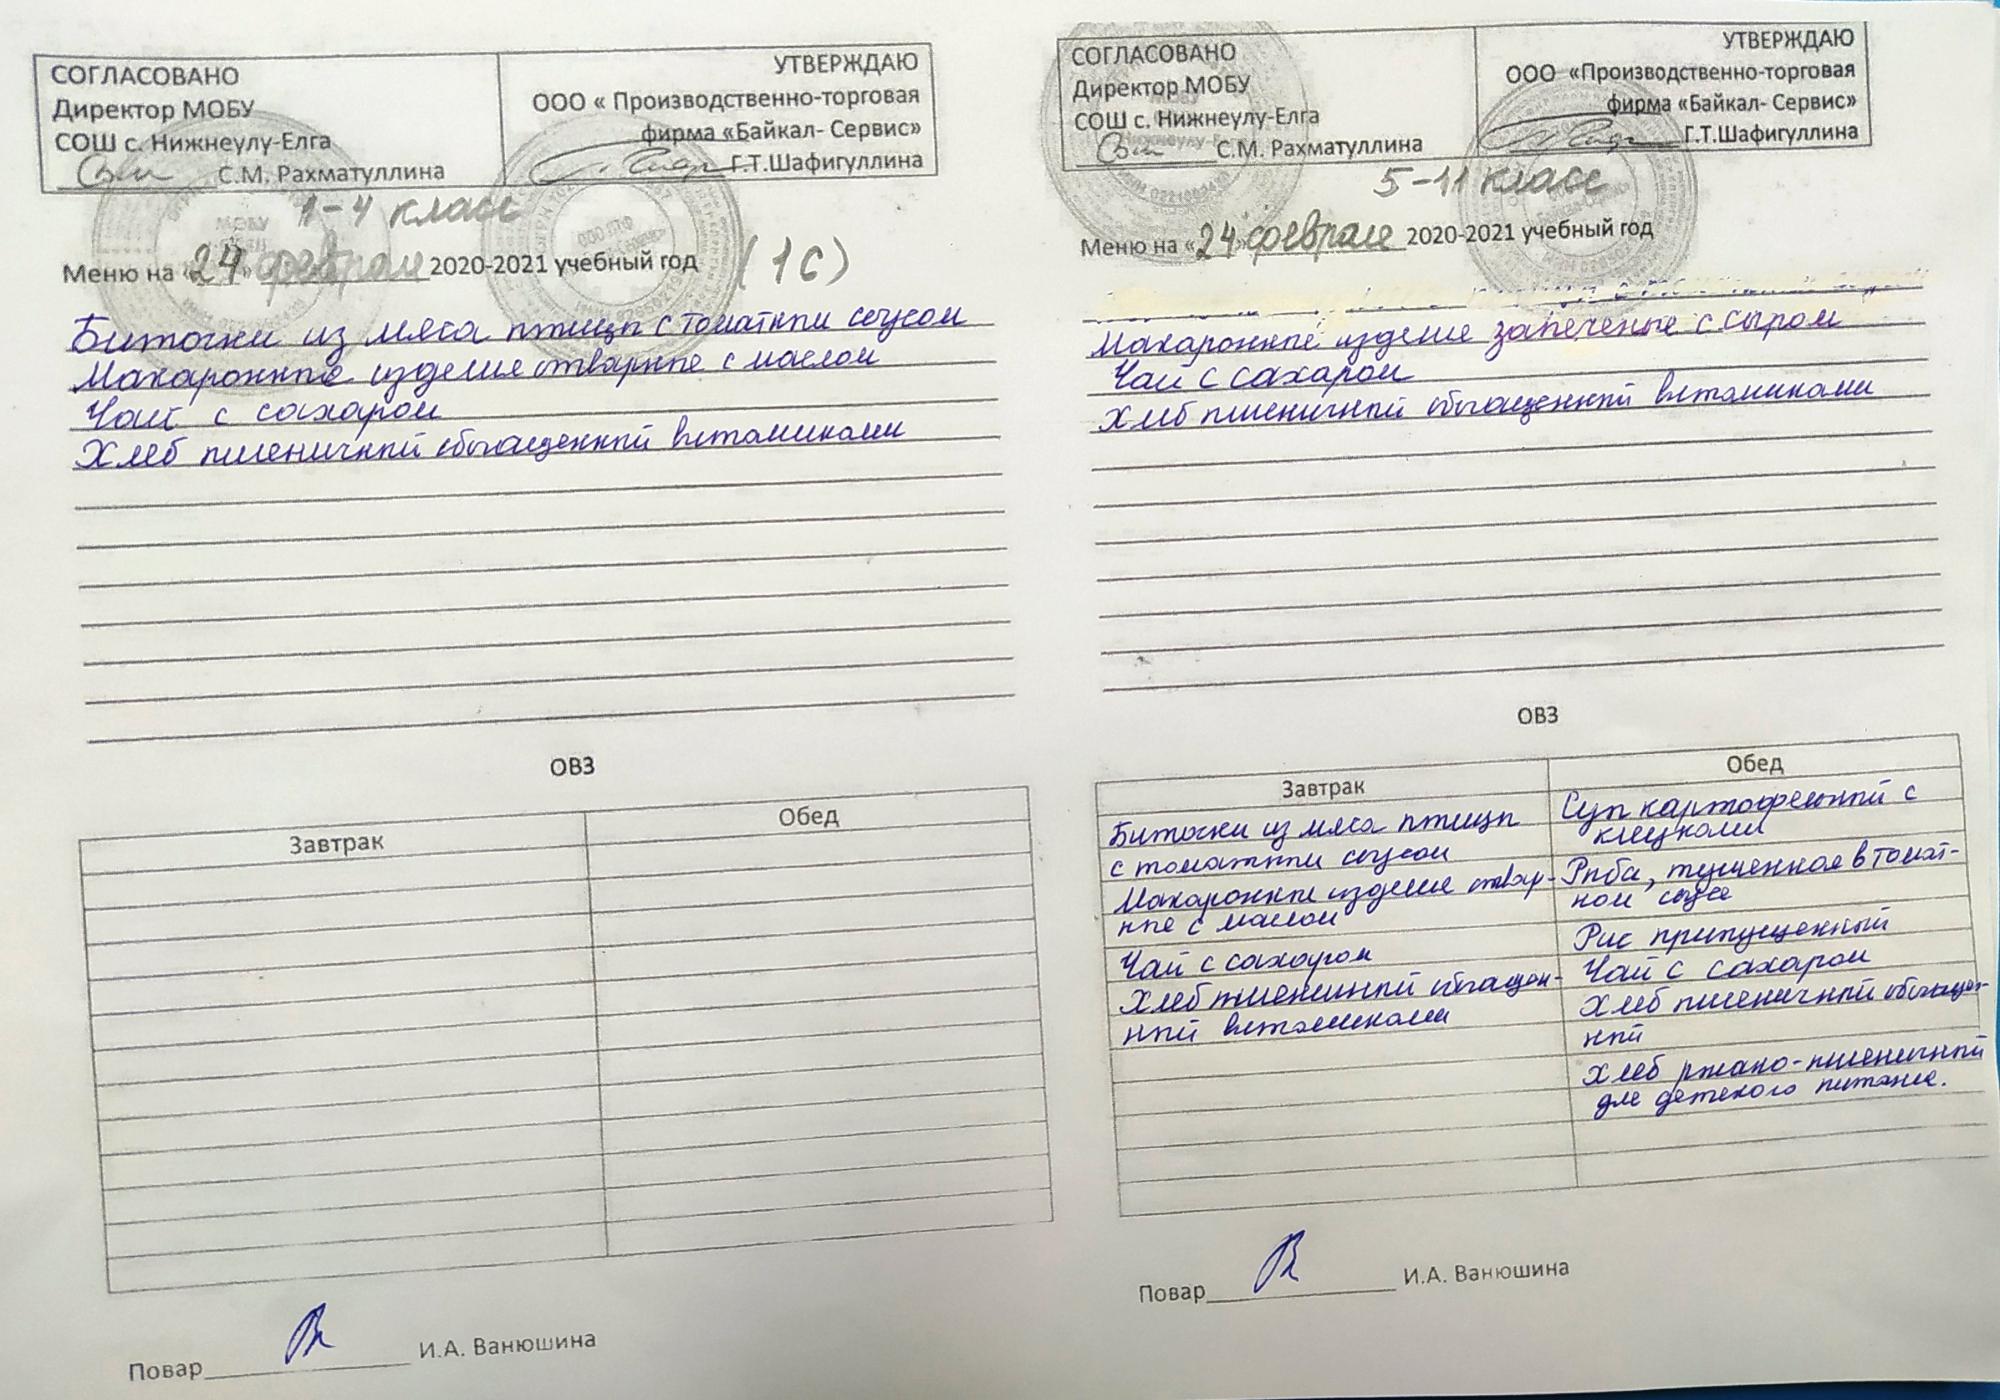 СОГЛАСОВАНО
Директор МОБУ
СОШ с. Нижнеулу-Елга
С.М. Рахматуллина
УТВЕРЖДАЮ
ООО « Производственно-торговая
фирма «Байкал- Сервис»
Г.Т.Шафигуллина
1-4 класс
Меню на «24» февраля 2020-2021 учебный год (1С)
Биточки из мяса птицы с томатны соусом
Макаронные изделия отварные с маслом
Чай с сахаром
Хлеб пшеничный обогащенный витаминами
ОВЗ
Завтрак
Обед
Повар
И.А. Ванюшина
СОГЛАСОВАНО
Директор МОБУ
СОШ с. Нижнеулу-Елга
С.М. Рахматуллина
УТВЕРЖДАЮ
ООО «Производственно-торговая
фирма «Байкал- Сервис»
Г.Т.Шафигуллина
5-11 класс
Меню на «24» февраля 2020-2021 учебный год
Макаронные изделия запеченые с сыром
Чай с сахаром
Хлеб пшеничный обогащенный витаминами
ОВЗ
Завтрак
Биточки из мяса птицы
с томатны соусом
Макаронны изделия отвар-
ные с маслом
Чай с сахаром
Хлеб пшеничный обогащен-
ный витаминами
Обед
Суп картофельный с
клецками
Рыба, тушенная в томат-
ном соусе
Рис припущенный
Чай с сахаром
Хлеб пшеничный обогащен-
ный
Хлеб ржано-пшеничный
для детского питания.
Повар
И.А. Ванюшина